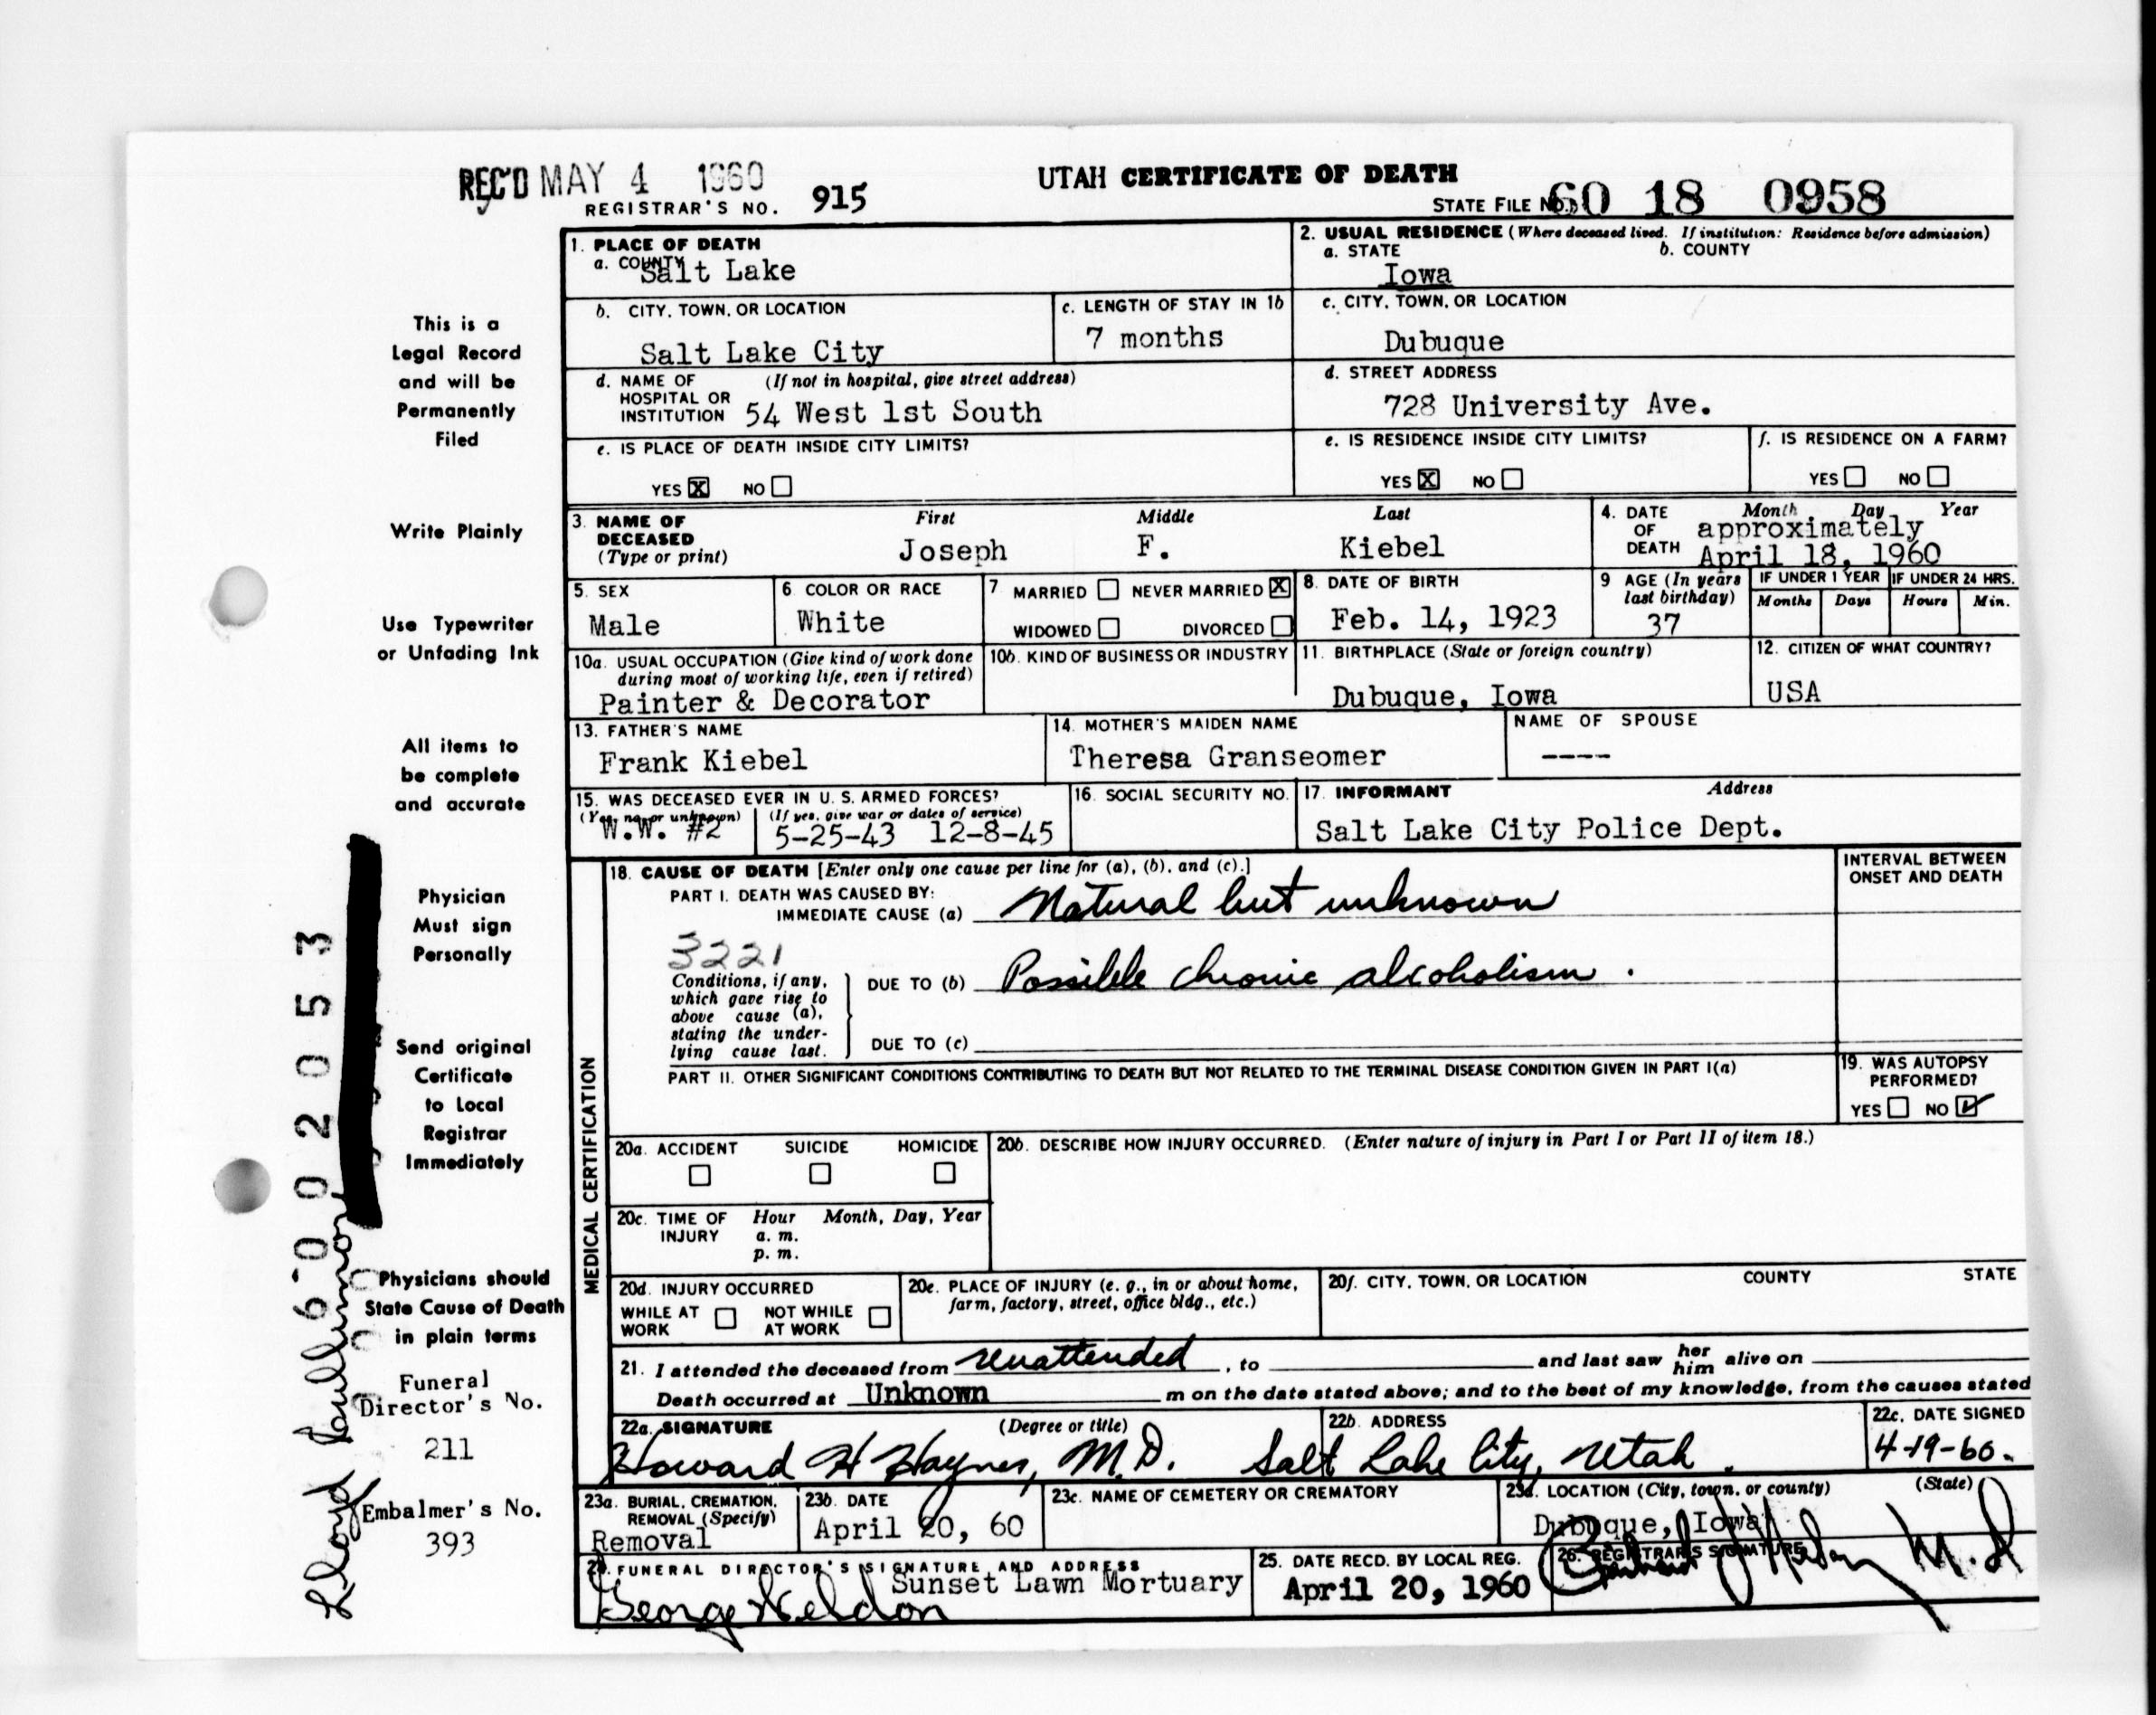 REC'D MAY 4 1960
UTAH CERTIFICATE OF DEATH
REGISTRAR'S NO. 915
STATE FILE NO. 60 18 0958
This is a
Legal Record
and will be
Permanently
Filed
Write Plainly
Use Typewriter
or Unfading Ink
All items to
be complete
and accurate
Physician
Must sign
Personally
Send original
Certificate
to Local
Registrar
Immediately
Physicians should
State Cause of Death
in plain terms
Funeral
Director's No.
211
Embalmer's No.
393
6 0 0 2 0 5 3
Lloyd
1. PLACE OF DEATH
a. COUNTY
Salt Lake
2. USUAL RESIDENCE (Where deceased lived. If institution: Residence before admission)
a. STATE b. COUNTY
Iowa
b. CITY, TOWN, OR LOCATION
Salt Lake City
c. LENGTH OF STAY IN 1b
7 months
c. CITY, TOWN, OR LOCATION
Dubuque
d. NAME OF HOSPITAL OR INSTITUTION (If not in hospital, give street address)
54 West 1st South
d. STREET ADDRESS
728 University Ave.
e. IS PLACE OF DEATH INSIDE CITY LIMITS?
YES X NO
e. IS RESIDENCE INSIDE CITY LIMITS?
YES X NO
f. IS RESIDENCE ON A FARM?
YES NO
3. NAME OF DECEASED (Type or print)
First Middle Last
Joseph F. Kiebel
4. DATE OF DEATH
Month Day Year
approximately
April 18, 1960
5. SEX
Male
6. COLOR OR RACE
White
7 MARRIED NEVER MARRIED X
WIDOWED DIVORCED
8. DATE OF BIRTH
Feb. 14, 1923
9 AGE (In years last birthday)
37
IF UNDER 1 YEAR
Months Days
IF UNDER 24 HRS.
Hours Min.
10a. USUAL OCCUPATION (Give kind of work done during most of working life, even if retired)
Painter & Decorator
10b. KIND OF BUSINESS OR INDUSTRY
11. BIRTHPLACE (State or foreign country)
Dubuque, Iowa
12. CITIZEN OF WHAT COUNTRY?
USA
13. FATHER'S NAME
Frank Kiebel
14. MOTHER'S MAIDEN NAME
Theresa Granseomer
NAME OF SPOUSE
----
15. WAS DECEASED EVER IN U. S. ARMED FORCES?
(Yes, no, or unknown) (If yes, give war or dates of service)
W.W. #2 5-25-43 12-8-45
16. SOCIAL SECURITY NO.
17. INFORMANT Address
Salt Lake City Police Dept.
MEDICAL CERTIFICATION
18. CAUSE OF DEATH [Enter only one cause per line for (a), (b), and (c).]
INTERVAL BETWEEN ONSET AND DEATH
PART I. DEATH WAS CAUSED BY:
IMMEDIATE CAUSE (a) Natural but unknown
3221
Conditions, if any,
which gave rise to
above cause (a),
stating the under-
lying cause last.
DUE TO (b) Possible chronic alcoholism.
DUE TO (c)
PART II. OTHER SIGNIFICANT CONDITIONS CONTRIBUTING TO DEATH BUT NOT RELATED TO THE TERMINAL DISEASE CONDITION GIVEN IN PART I(a)
19. WAS AUTOPSY PERFORMED?
YES NO ✓
20a. ACCIDENT SUICIDE HOMICIDE
20b. DESCRIBE HOW INJURY OCCURRED. (Enter nature of injury in Part I or Part II of item 18.)
20c. TIME OF INJURY Hour Month, Day, Year
a. m.
p. m.
20d. INJURY OCCURRED
WHILE AT WORK NOT WHILE AT WORK
20e. PLACE OF INJURY (e. g., in or about home, farm, factory, street, office bldg., etc.)
20f. CITY, TOWN, OR LOCATION COUNTY STATE
21. I attended the deceased from unattended, to and last saw her him alive on
Death occurred at Unknown m on the date stated above; and to the best of my knowledge, from the causes stated
22a. SIGNATURE (Degree or title)
Howard H Haynes, M.D.
22b. ADDRESS
Salt Lake City, Utah.
22c. DATE SIGNED
4-19-60.
23a. BURIAL, CREMATION, REMOVAL (Specify)
Removal
23b. DATE
April 20, 60
23c. NAME OF CEMETERY OR CREMATORY
23d. LOCATION (City, town, or county) (State)
Dubuque, Iowa
24. FUNERAL DIRECTOR'S SIGNATURE AND ADDRESS
Sunset Lawn Mortuary
George Weldon
25. DATE RECD. BY LOCAL REG.
April 20, 1960
26. REGISTRAR'S SIGNATURE
M.D